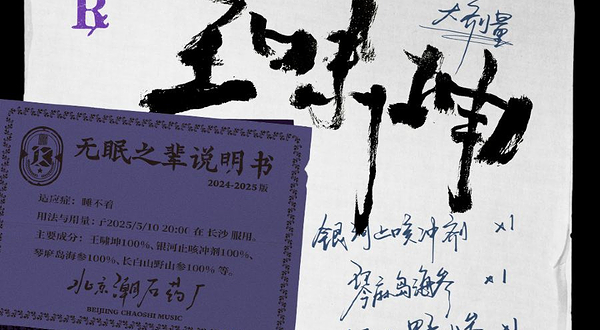 R
大剂量
王啸坤
无眠之辈说明书
2024-2025 版
适应症：睡不着
用法与用量：于2025/5/10 20:00 在 长沙 服用。
主要成分：王嘯坤100%、银河止咳冲剂100%、
琴麻岛海参100%、长白山野山参100% 等。
北京潮石药厂
BEIJING CHAOSHI MUSIC
银河止咳冲剂 x1
琴麻岛海参 x1